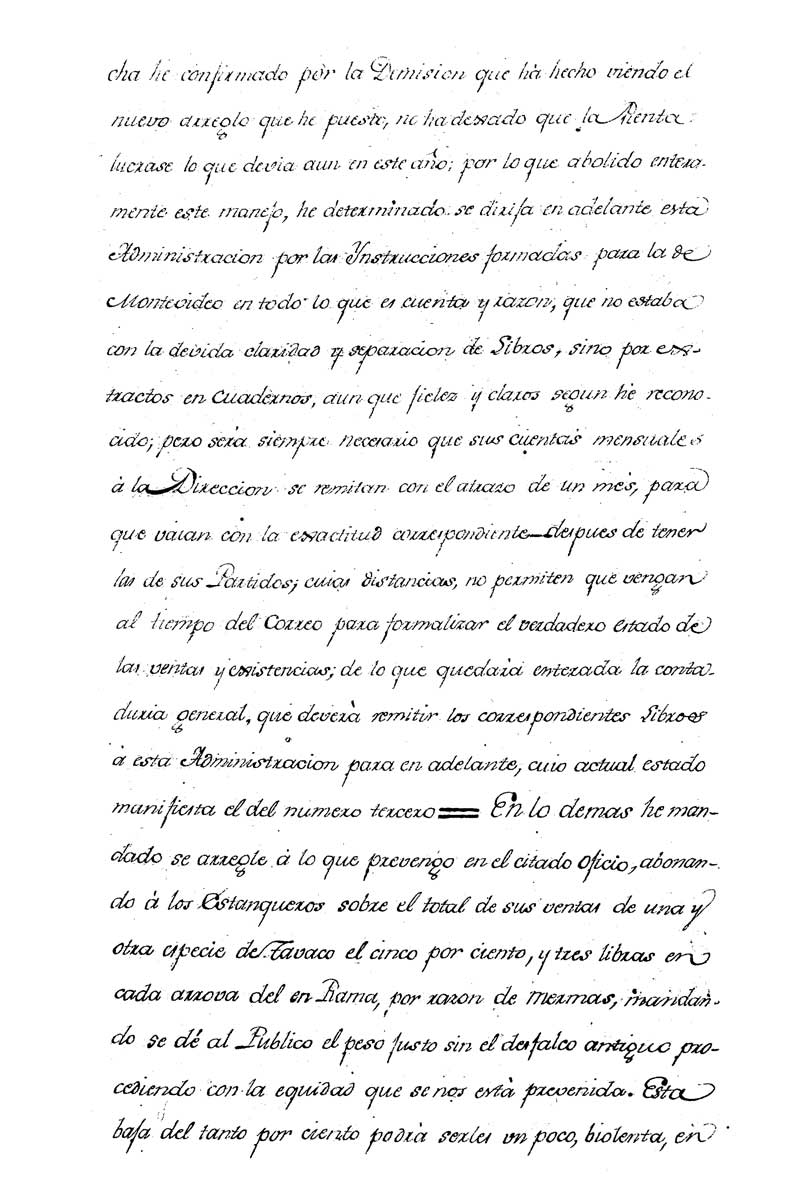 cha he confirmado pór la Dimision que hà hecho viendo el
nuevo arreglo que he puesto, no ha dexado que la Renta
lucrase lo que devia aun en este año; por lo que abolido entera-
mente este manejo, he determinado se dirija en adelante esta
Administracion por las Ynstrucciones formadas para la de
Montevideo en todo lo que es cuenta y razon, que no estaba
con la devida claridad y separacion de Libros, sino por exs-
tractos en Cuadernos, aun que fielez y claros segun he recono-
cido; pero serà siempre necesario que sus cuentas mensuales
à la Direccion se remitan con el atrazo de un mes, para
que vaian con la exsactitud correspondiente despues de tener
las de sus Partidos; cuias distancias, no permiten que vengan
al tiempo del Correo para formalizar el verdadero estado de
las ventas y exsistencias; de lo que quedarà enterada la conta-
duria general, que deverà remitir los correspondientes Libros
à esta Administracion para en adelante, cuio actual estado
manifiesta el del numero tercero == En lo demas he man-
dado se arregle à lo que prevengo en el citado oficio, abonan-
do à los Estanqueros sobre el total de sus ventas de una y
otra especie de Tavaco el cinco por ciento, y tres libras en
cada arrova del en Rama, por razon de mermas, mandan-
do se dé al Publico el peso justo sin el desfalco antiguo pro-
cediendo con la equidad que se nos està prevenida. Esta
baja del tanto por ciento podrà serles un poco, biolenta, en